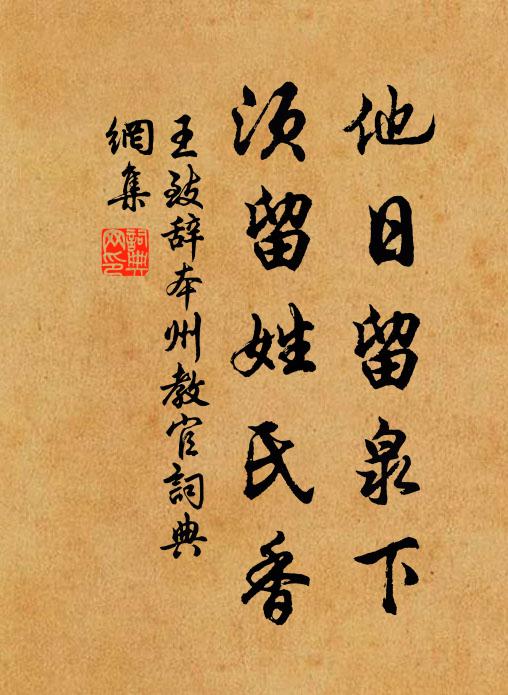 他日留泉下
须留姓氏香
王致辞本州教官詞典
網集
詞典
网印